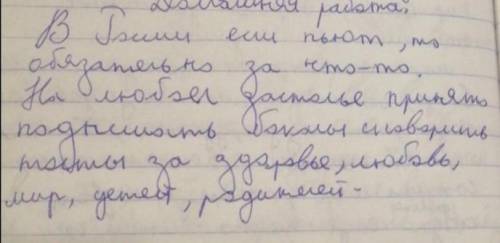 Домашняя работа.
В России если пьют, то
обязательно за что-то.
На любое застолье принято
поднимать бокалы и говорить
тосты за здоровье, любовь,
мир, детей, родителей.